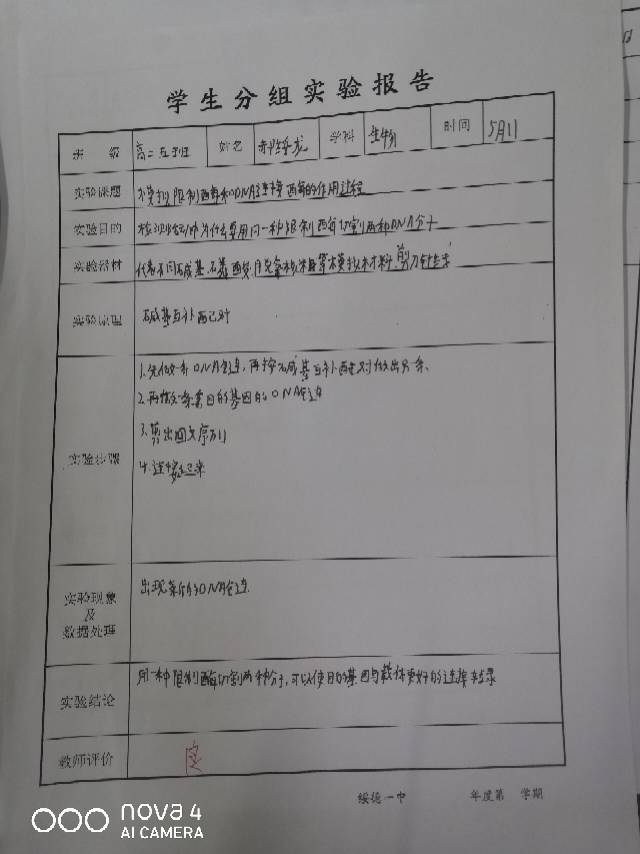 学生分组实验报告
班 级 高二五班 姓名 学科 生物 时间 5月11
实验课题 模拟限制酶和DNA连接酶的作用过程
实验目的 为什么要用同一种限制酶切割两种DNA分子
实验器材 代表不同碱基 剪刀
实验原理 碱基互补配对
1.先做一条DNA链,再按碱基互补配对做出另一条.
2.再做一条含目的基因的DNA链
实验步骤
3.剪出回文序列
4.连接起来
实验现象
及
数据处理
出现新的DNA链.
实验结论 用一种限制酶切割两种分子,可以使目的基因与载体更好的连接起来
教师评价 良
绥德一中 年度第 学期
nova 4
AI CAMERA